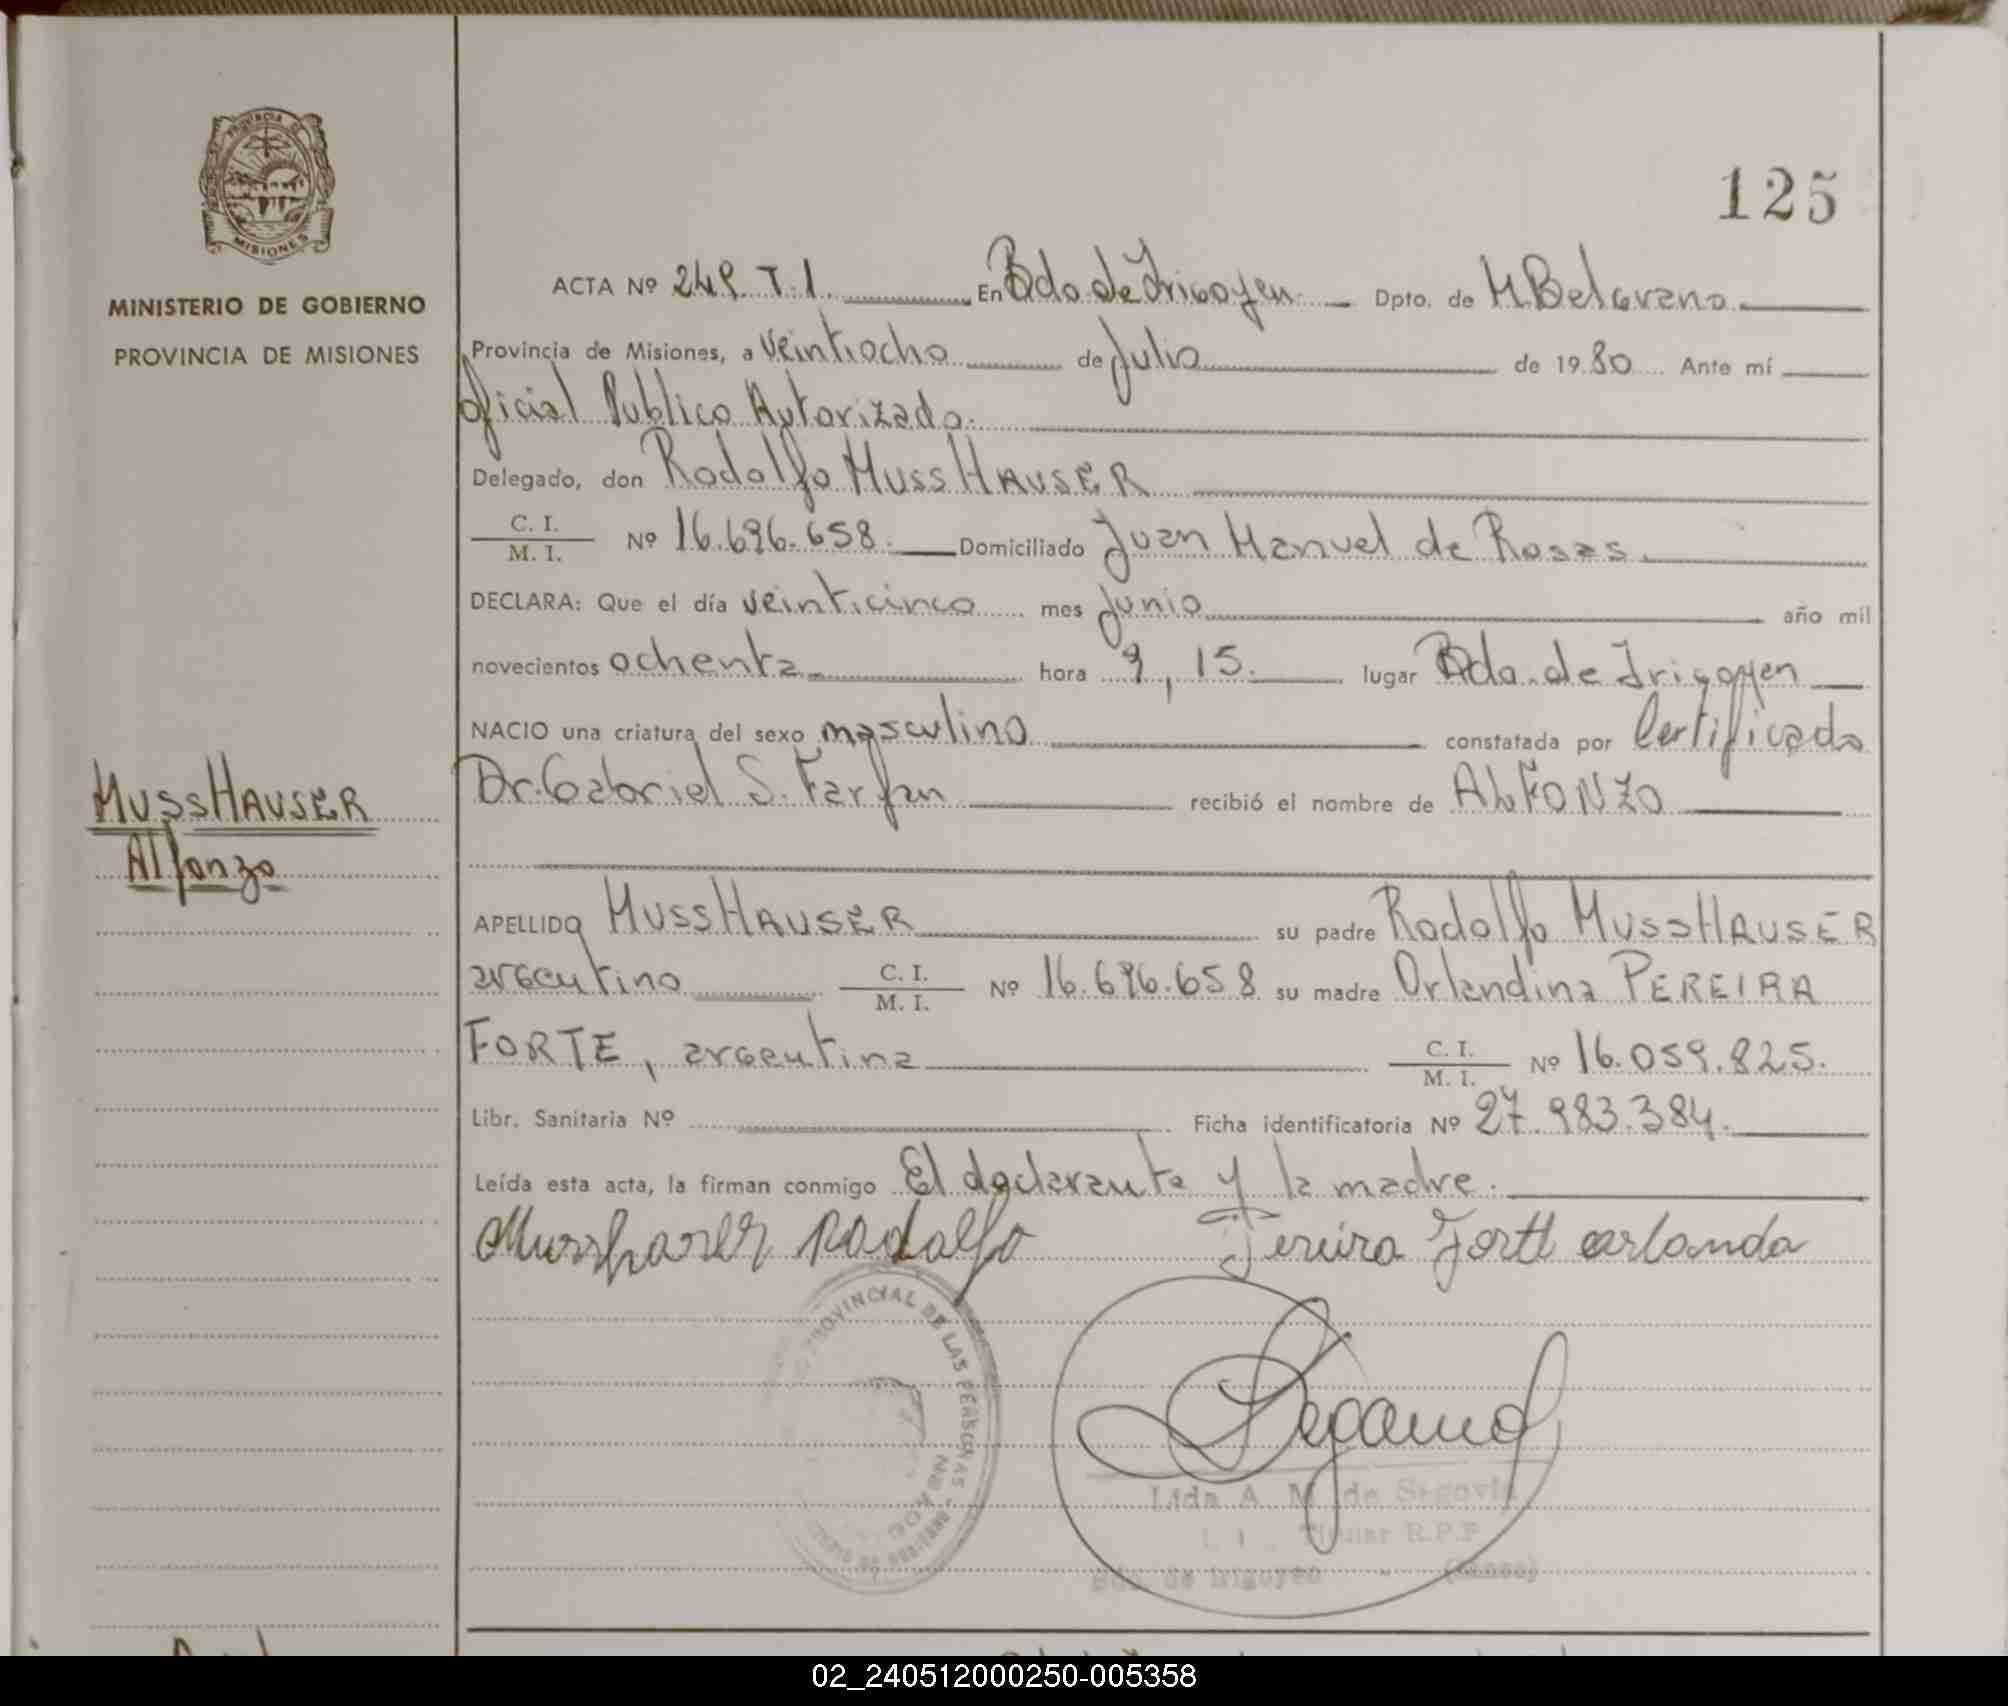 PROVINCIA DE
MISIONES
MINISTERIO DE GOBIERNO
PROVINCIA DE MISIONES
MUSSHAUSER
Alfonzo
125
ACTA Nº 249. T.1. En Bdo de Irigoyen Dpto. de M Belgrano
Provincia de Misiones, a veintiocho de Julio de 1980 Ante mí
Oficial Publico Autorizado.
Delegado, don Rodolfo MUSSHAUSER
C. I.
M. I. Nº 16.696.658. Domiciliado Juan Manuel de Rosas.
DECLARA: Que el día veinticinco mes Junio año mil
novecientos ochenta hora 9,15. lugar Bdo. de Irigoyen
NACIO una criatura del sexo masculino constatada por Certificado
Dr. Gabriel S. Farfan recibió el nombre de ALFONZO
APELLIDO MUSSHAUSER su padre Rodolfo MUSSHAUSER
argentino C. I. M. I. Nº 16.696.658 su madre Orlandina PEREIRA
FORTE, argentina C. I. M. I. Nº 16.059.825.
Libr. Sanitaria Nº Ficha identificatoria Nº 27.983.384.
Leída esta acta, la firman conmigo El declarante y la madre.
Musshauser Rodolfo Pereira Forte orlanda
PROVINCIAL DE LAS PERSONAS
A. M. de Segovia
Titular R.P.P
Bdo. de Irigoyen
02_240512000250-005358